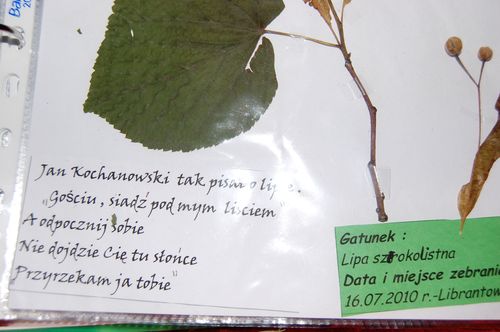 Jan Kochanowski tak pisał o lipie.
„Gościu, siądź pod mym liściem
A odpocznij sobie
Nie dojdzie Cię tu słońce
Przyrzekam ja tobie"
Gatunek :
Lipa szerokolistna
Data i miejsce zebrania
16.07.2010 r.-Librantow